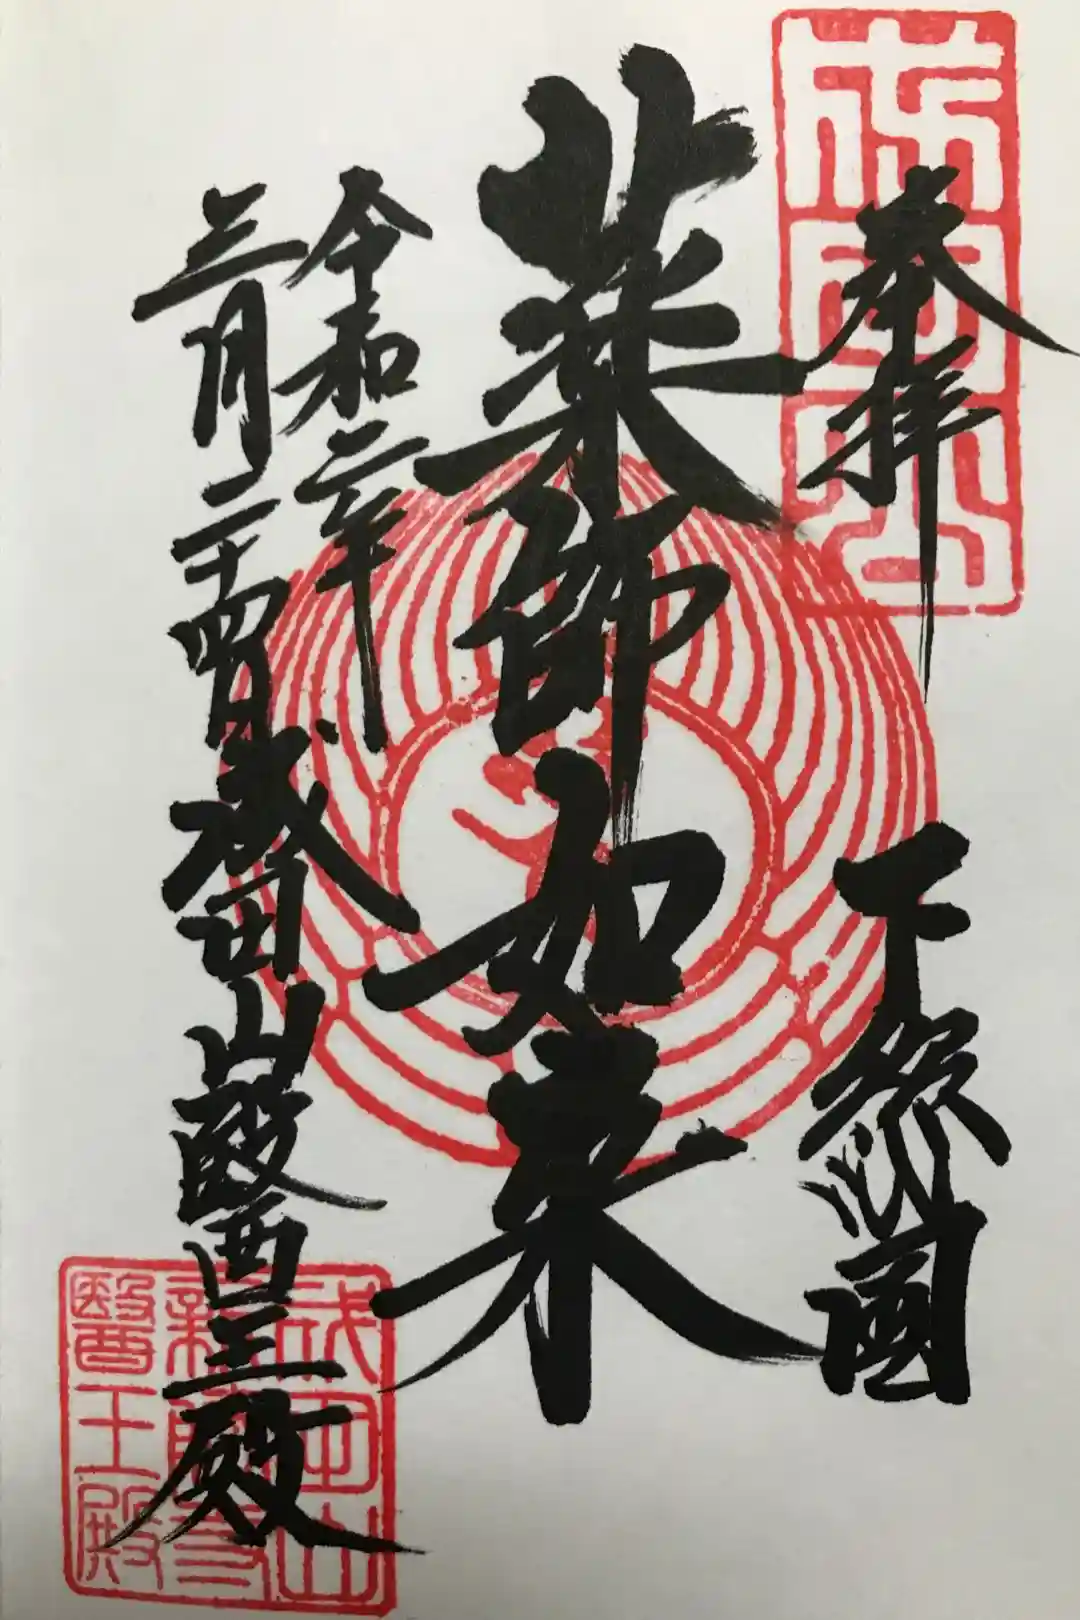 奉拝
下総國
薬師如来
令和二年
三月二十四日
成田山醫王殿
成田山
成田山
新勝寺
醫王殿